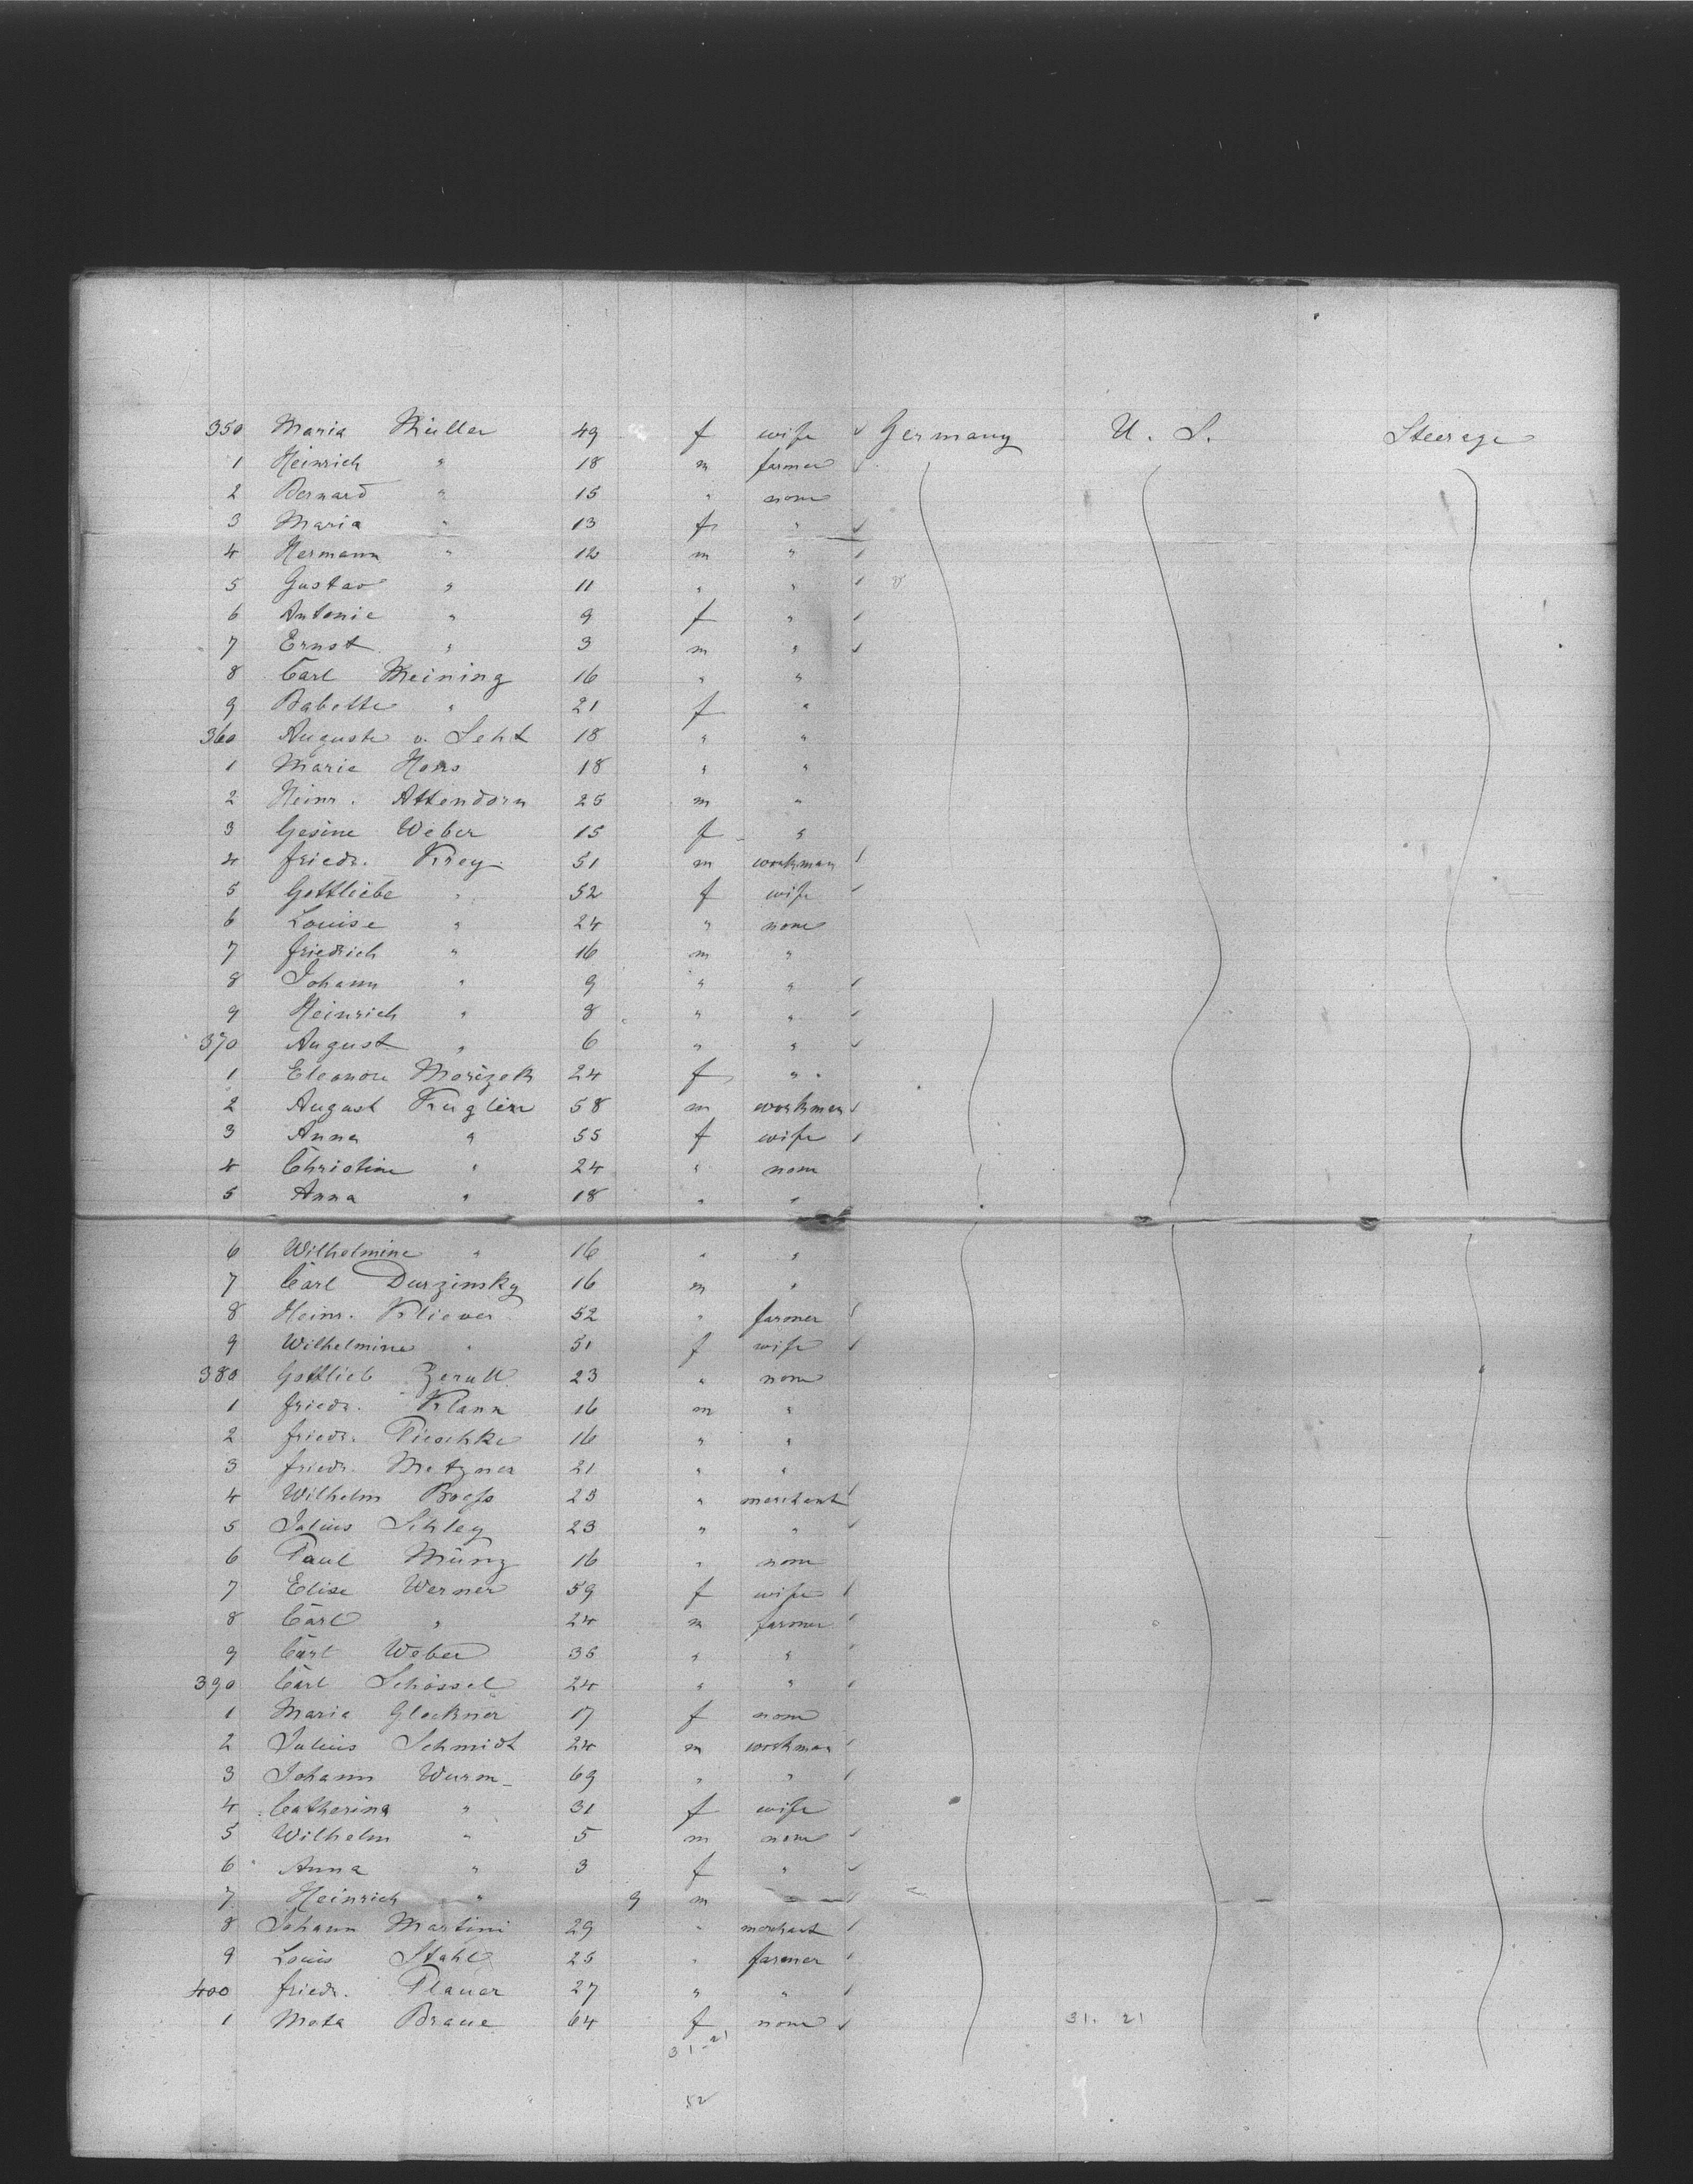 350 Maria Müller 49 f wife ✓ Germany U. S. Steerage
1 Heinrich " 18 m farmer ✓
2 Bernard " 15 " none
3 Maria " 13 f " ✓
4 Hermann " 12 m " ✓
5 Gustav " 11 " " ✓
6 Antonie " 9 f " ✓
7 Ernst " 3 m " ✓
8 Carl Meining 16 " "
9 Babette " 21 f "
360 Auguste v. Seht 18 " "
1 Marie 18 " "
2 Heinr. Attendorn 25 m "
3 Gesine Weber 15 f "
4 Friedr. Krey 51 m workman ✓
5 Gottliebe " 52 f wife ✓
6 Louise " 24 " none
7 Friedrich " 16 m "
8 Johann " 9 " " ✓
9 Heinrich " 8 " " ✓
370 August " 6 " " ✓
1 Eleonore Morizek 24 f "
2 August Kuglin 58 m workman ✓
3 Anna " 55 f wife ✓
4 Christine " 24 " none
5 Anna " 18 " "
6 Wilhelmine " 16 " "
7 Carl Durzimsky 16 m "
8 Heinr. Kliewer 52 " farmer ✓
9 Wilhelmine " 51 f wife ✓
380 Gottlieb Zerull 23 " none
1 Friedr. Klann 16 m "
2 Friedr. Pieschke 16 " "
3 Friedr. Metzner 21 " "
4 Wilhelm 23 " merchant ✓
5 Julius Sihley 23 " " ✓
6 Paul Münz 16 " none
7 Elise Werner 59 f wife ✓
8 Carl " 24 m farmer ✓
9 Carl Weber 35 " " ✓
390 Carl Schössel 24 " " ✓
1 Maria Glockner 17 f none
2 Julius Schmidt 24 m workman ✓
3 Johann Wurm 69 " " ✓
4 Catharina " 31 f wife
5 Wilhelm " 5 m none ✓
6 Anna " 3 f " ✓
7 Heinrich " 9 m " ✓
8 Johann Martini 29 " merchant ✓
9 Louis Stahl 25 " farmer ✓
400 Friedr. Plauer 27 " " ✓
1 Meta Braue 64 f none ✓ 31. 21
31-21
52